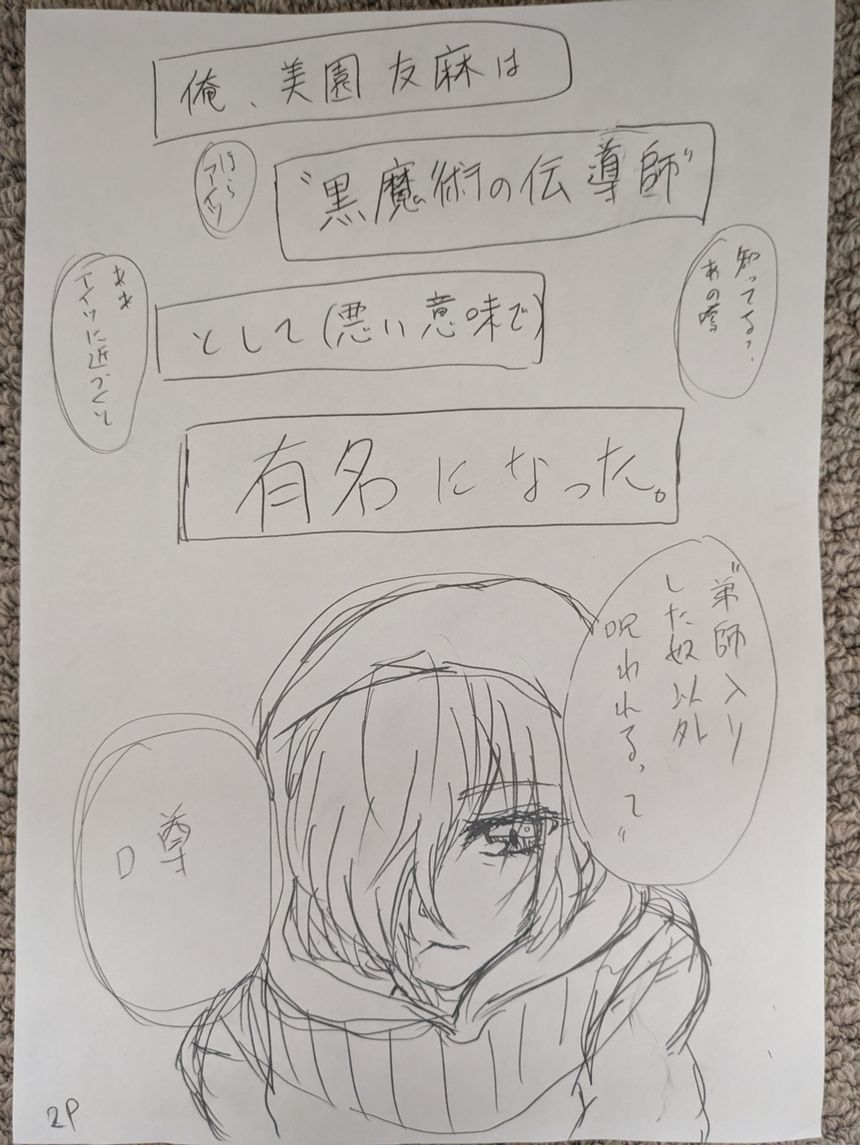 俺、美園友麻は
"黒魔術の伝導師"
ほら
アイツ
知ってる?
あの噂
として(悪い意味で)
ねぇ
アイツに近づくと
有名になった。
"弟師入り
した奴以外
呪われるって"
噂
2P